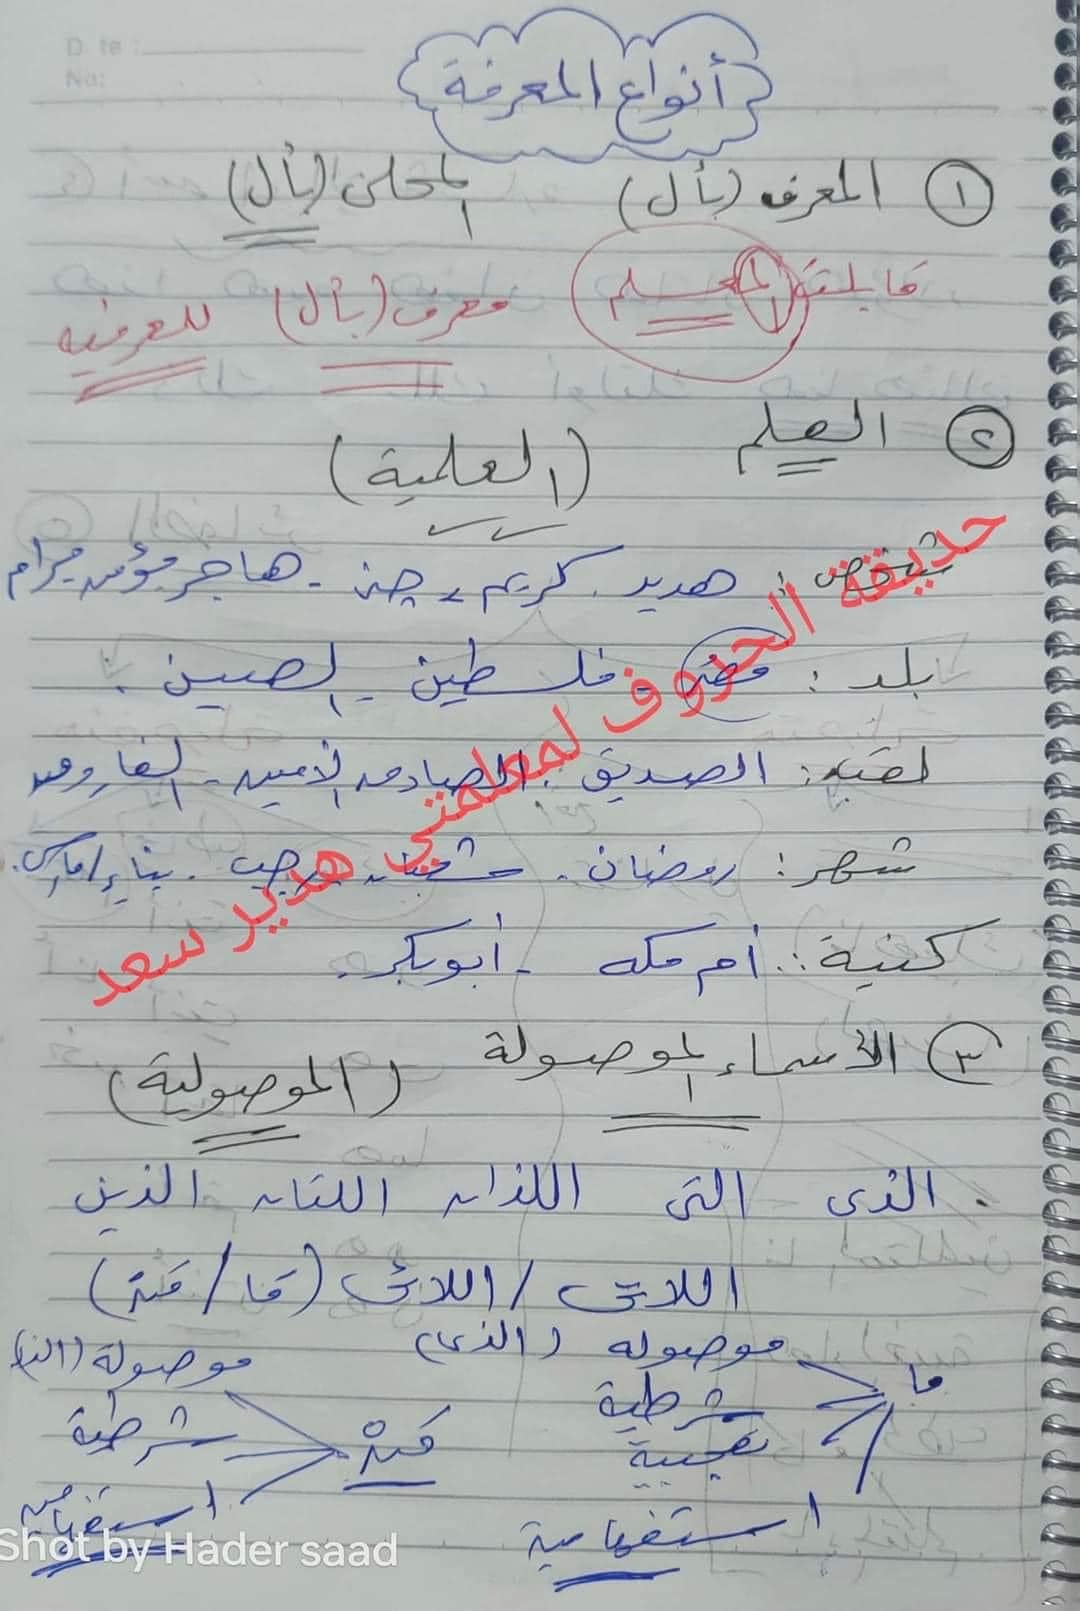 أنواع المعرفة
١ المعرف (بأل) المحلى (بأل)
قابلت المعلم معرف (بأل) للعرفية
٢ العلم
(العلمية)
شخص: هدير. كريم، جنى - هاجر مؤمن مرام
بلد: مصر - فلسطين - الصين.
لقب: الصديق - الصادق الأمين - الفاروق
شهر: رمضان - شعبان - رجب - يناير/مارس.
كنية: أم مكه - أبو بكر.
حديقة الحروف لمعلمتي هدير سعد
٣ الأسماء الموصولة (الموصولية)
. الذى التى اللذان اللتان الذين
اللاتى / اللائى (ما / مَنْ)
ما موصوله (الذى)
شرطية
تعجبية
استفهامية
مَنْ موصولة
شرطية
استفهامية
Shot by Hader saad